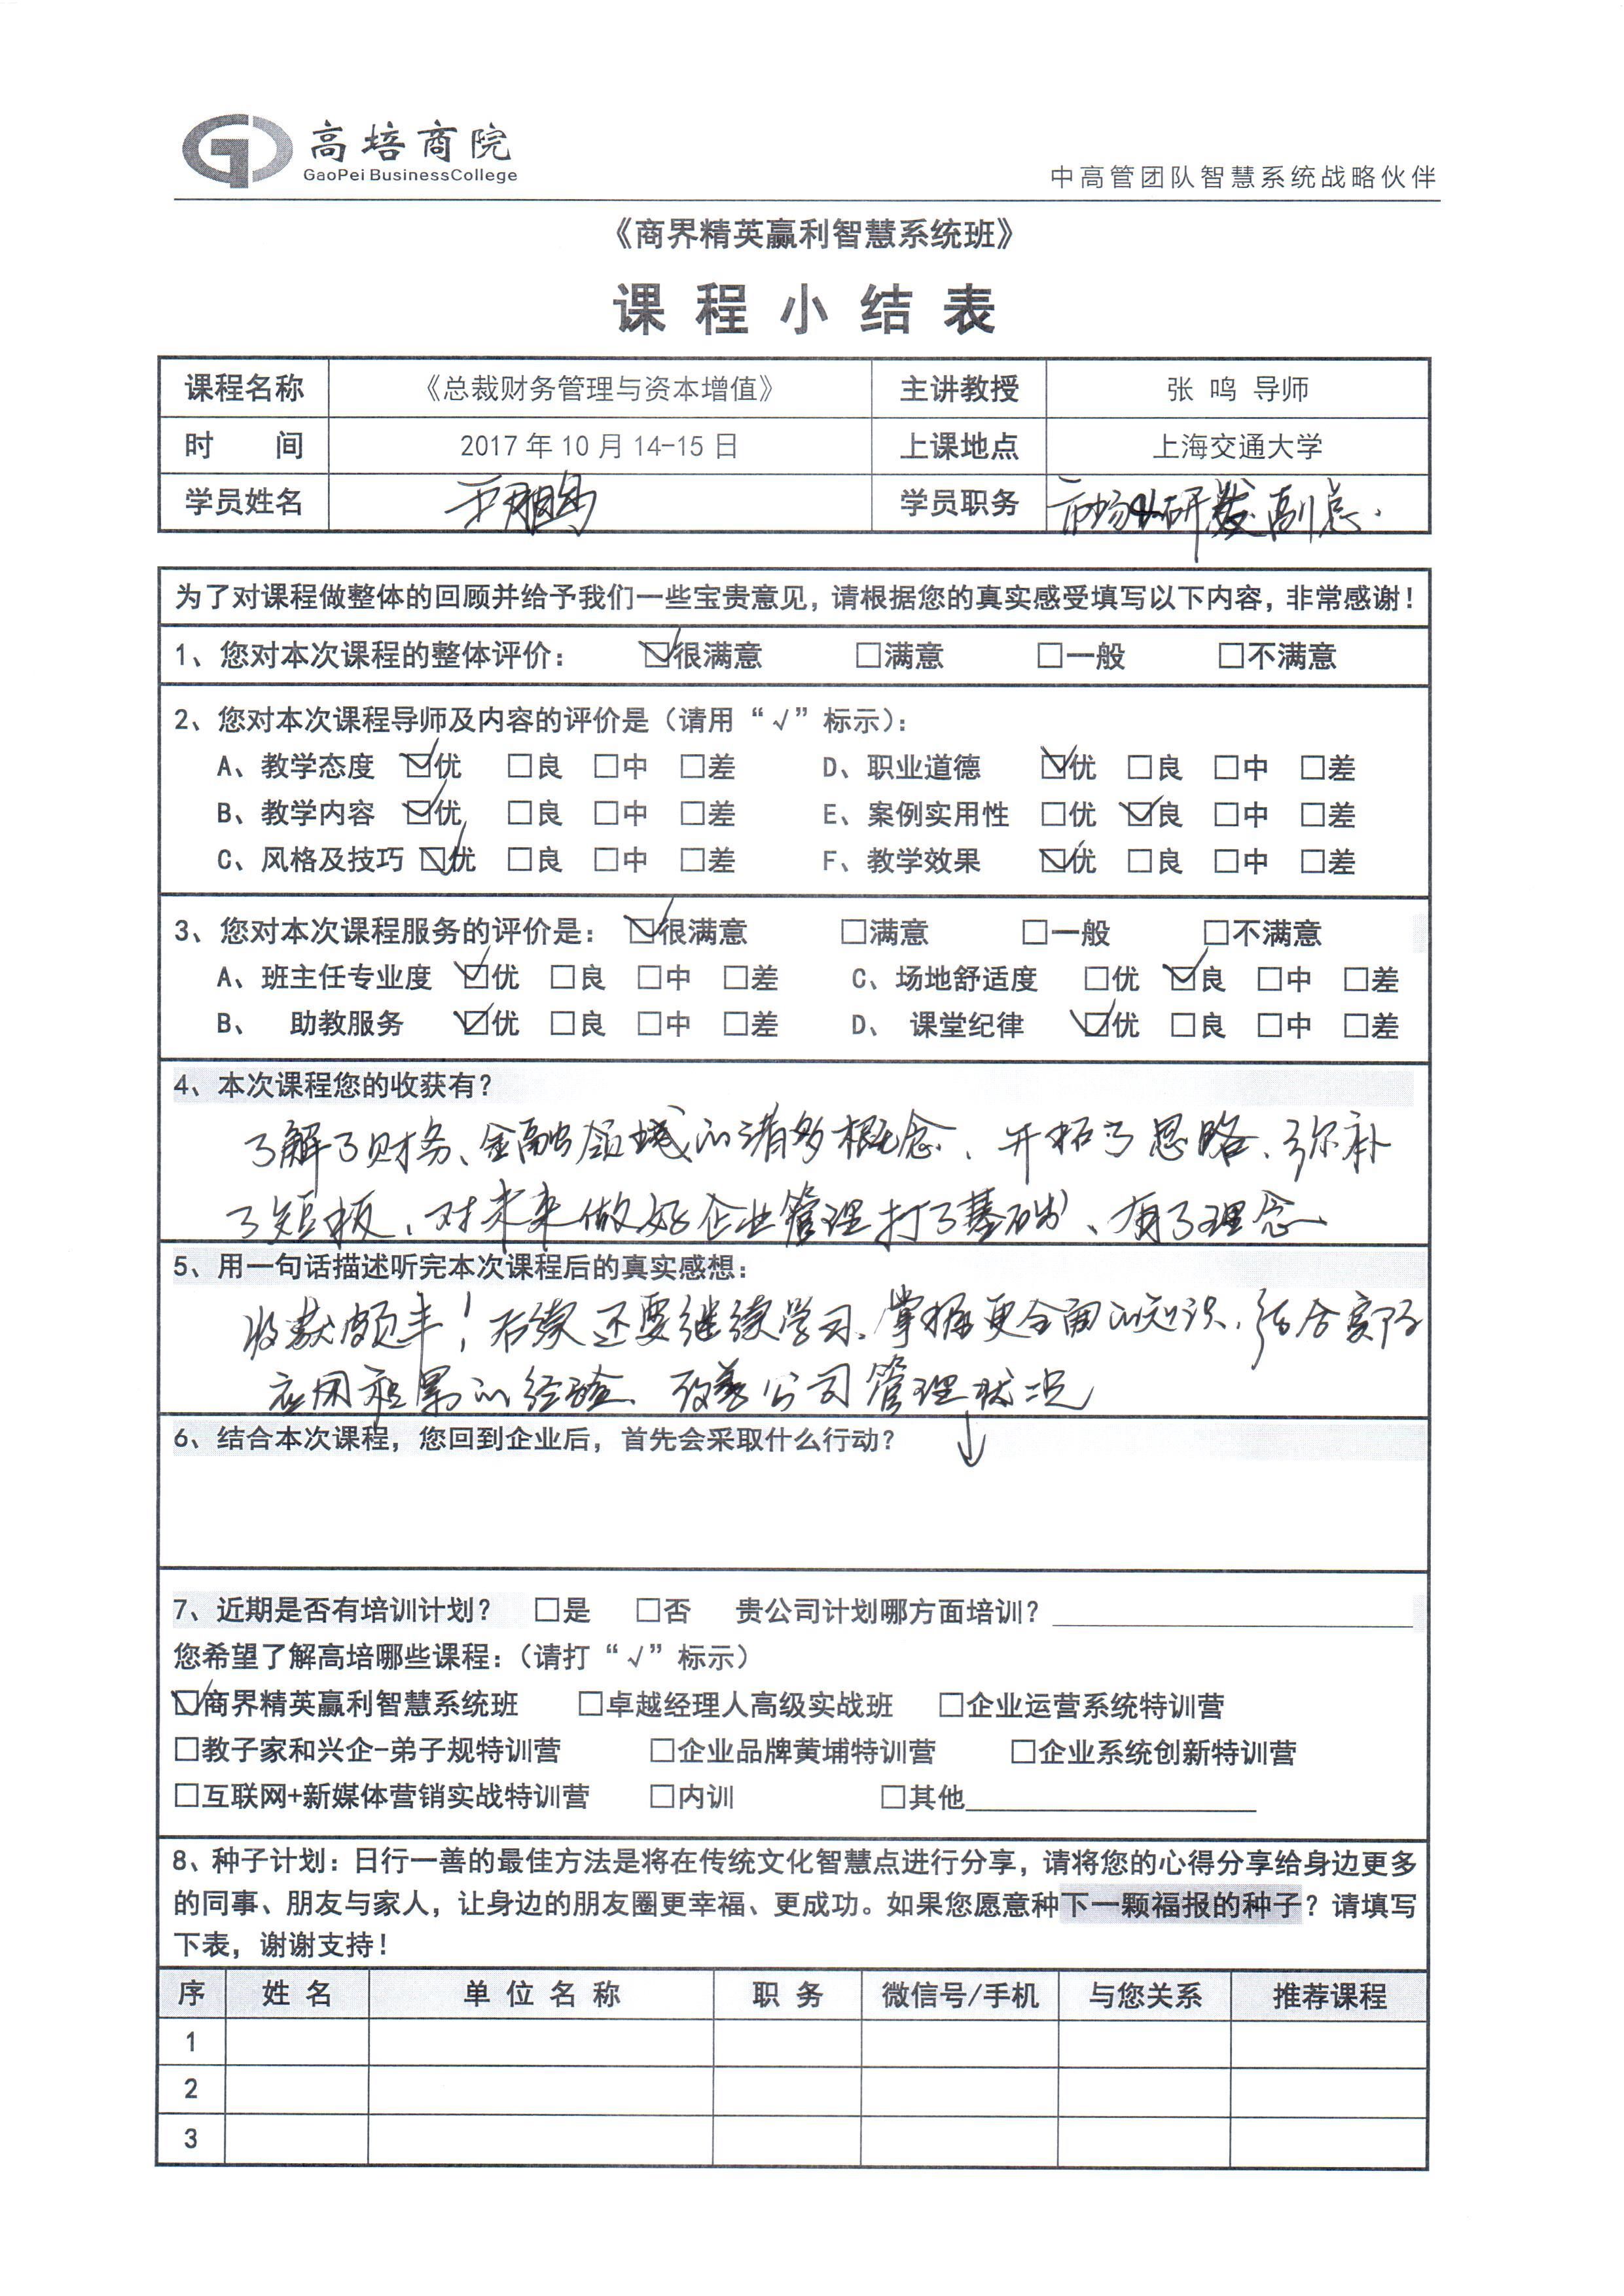 高培商院
GaoPei BusinessCollege
中高管团队智慧系统战略伙伴
《商界精英赢利智慧系统班》
课程小结表
课程名称 《总裁财务管理与资本增值》 主讲教授 张 鸣 导师
时 间 2017 年 10 月 14-15 日 上课地点 上海交通大学
学员姓名 学员职务 市场研发副总.
为了对课程做整体的回顾并给予我们一些宝贵意见，请根据您的真实感受填写以下内容，非常感谢！
1、您对本次课程的整体评价： ☑很满意 □满意 □一般 □不满意
2、您对本次课程导师及内容的评价是（请用“√”标示）：
A、教学态度 ☑优 □良 □中 □差 D、职业道德 ☑优 □良 □中 □差
B、教学内容 ☑优 □良 □中 □差 E、案例实用性 □优 ☑良 □中 □差
C、风格及技巧 ☑优 □良 □中 □差 F、教学效果 ☑优 □良 □中 □差
3、您对本次课程服务的评价是： ☑很满意 □满意 □一般 □不满意
A、班主任专业度 ☑优 □良 □中 □差 C、场地舒适度 □优 ☑良 □中 □差
B、 助教服务 ☑优 □良 □中 □差 D、 课堂纪律 ☑优 □良 □中 □差
4、本次课程您的收获有？
了解了财务、金融领域的诸多概念、开拓了思路、弥补
了短板、对未来做好企业管理打了基础、有了理念
5、用一句话描述听完本次课程后的真实感想：
收获颇丰！后续还要继续学习、掌握更全面的知识，结合实际
应用积累的经验、改善公司管理状况
6、结合本次课程，您回到企业后，首先会采取什么行动？ ↓
7、近期是否有培训计划？ □是 □否 贵公司计划哪方面培训？
您希望了解高培哪些课程：（请打“√”标示）
☑商界精英赢利智慧系统班 □卓越经理人高级实战班 □企业运营系统特训营
□教子家和兴企-弟子规特训营 □企业品牌黄埔特训营 □企业系统创新特训营
□互联网+新媒体营销实战特训营 □内训 □其他
8、种子计划：日行一善的最佳方法是将在传统文化智慧点进行分享，请将您的心得分享给身边更多
的同事、朋友与家人，让身边的朋友圈更幸福、更成功。如果您愿意种下一颗福报的种子？请填写
下表，谢谢支持！
序 姓 名 单 位 名 称 职 务 微信号/手机 与您关系 推荐课程
1
2
3